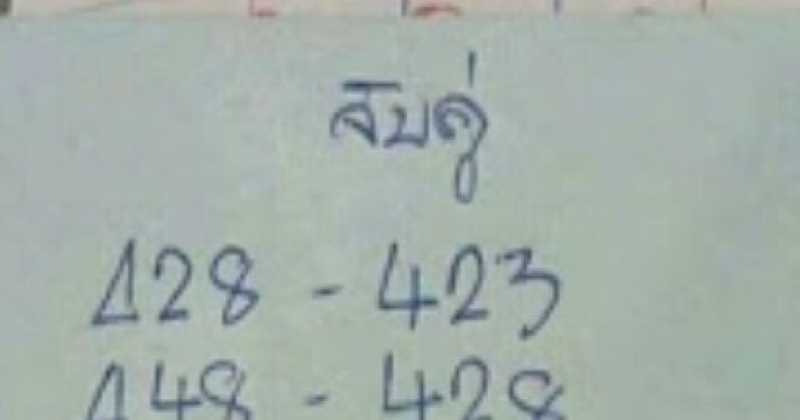 จับคู่
128 - 423
148 - 428